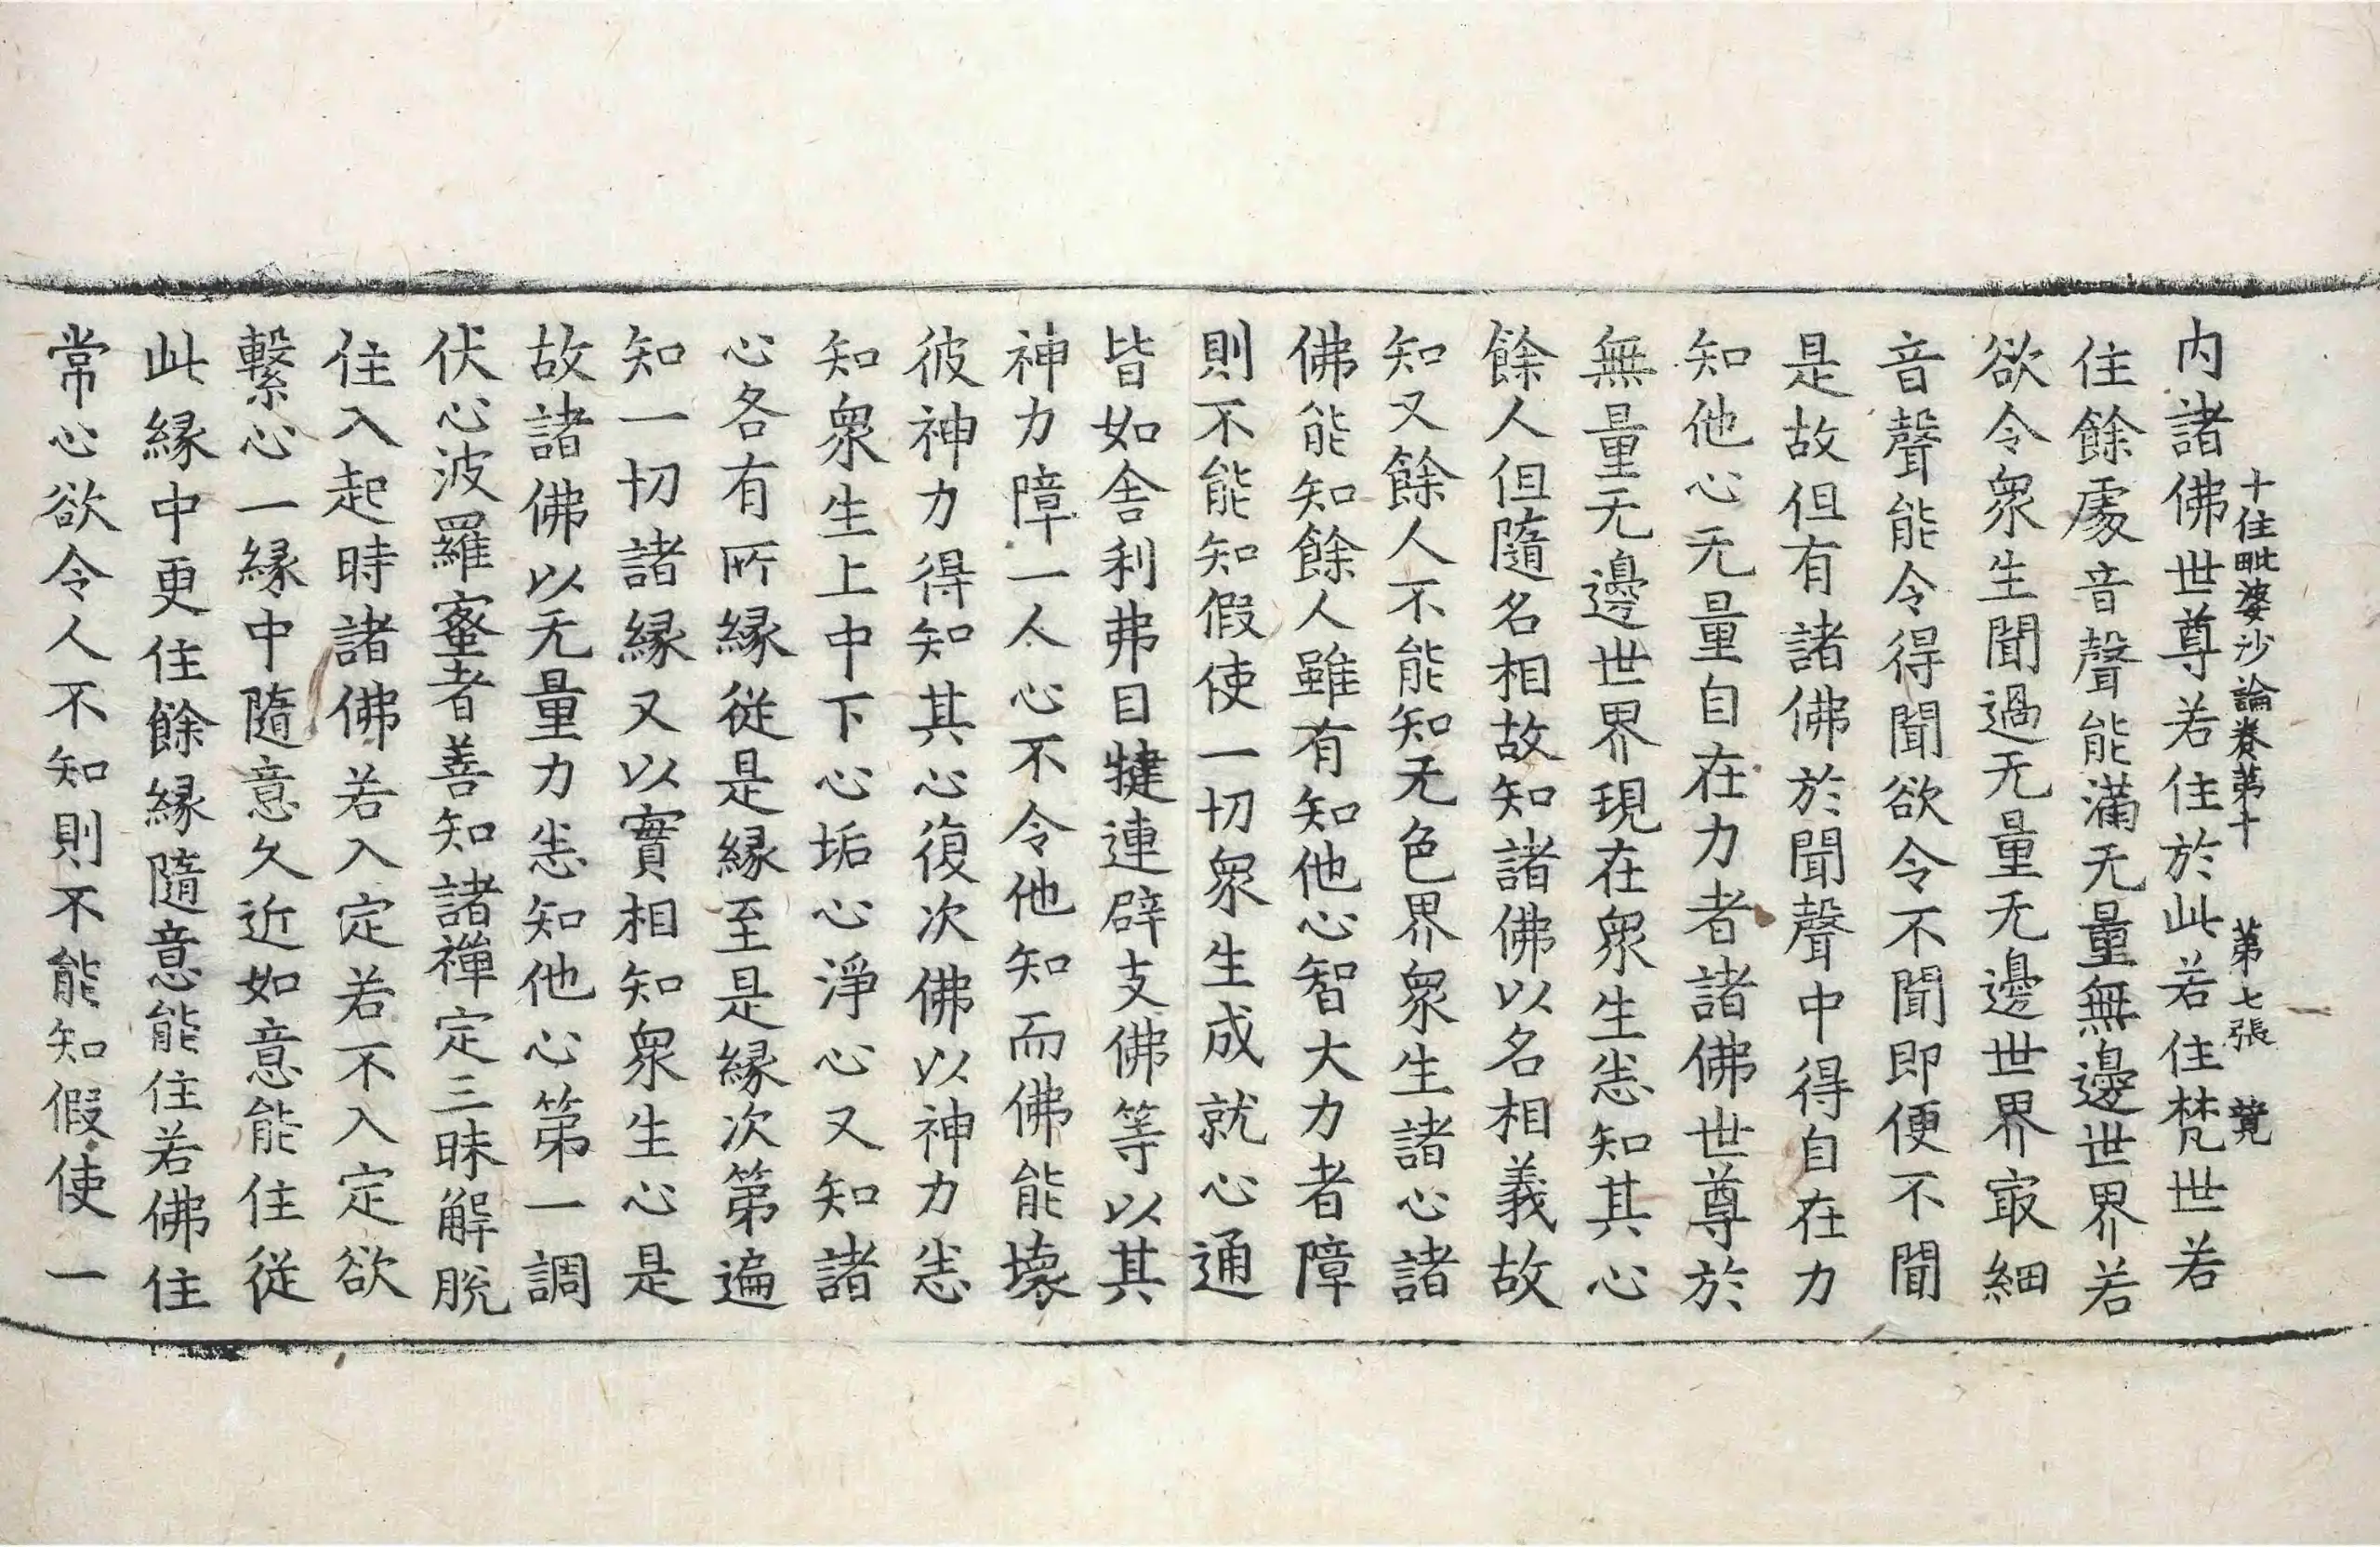 十住毗婆沙論卷第十　第七張　竟
内諸佛世尊若住於此若住梵世若
住餘處音聲能滿无量無邊世界若
欲令衆生聞過无量无邊世界㝡細
音聲能令得聞欲令不聞即便不聞
是故但有諸佛於聞聲中得自在力
知他心无量自在力者諸佛世尊於
無量无邊世界現在衆生悉知其心
餘人但隨名相故知諸佛以名相義故
知又餘人不能知无色界衆生諸心諸
佛能知餘人雖有知他心智大力者障
則不能知假使一切衆生成就心通
皆如舍利弗目犍連辟支佛等以其
神力障一人心不令他知而佛能壞
彼神力得知其心復次佛以神力悉
知衆生上中下心垢心淨心又知諸
心各有所緣從是緣至是緣次第遍
知一切諸緣又以實相知衆生心是
故諸佛以无量力悉知他心第一調
伏心波羅蜜者善知諸禪定三昧解脫
住入起時諸佛若入定若不入定欲
繫心一緣中隨意久近如意能住從
此緣中更住餘緣隨意能住若佛住
常心欲令人不知則不能知假使一